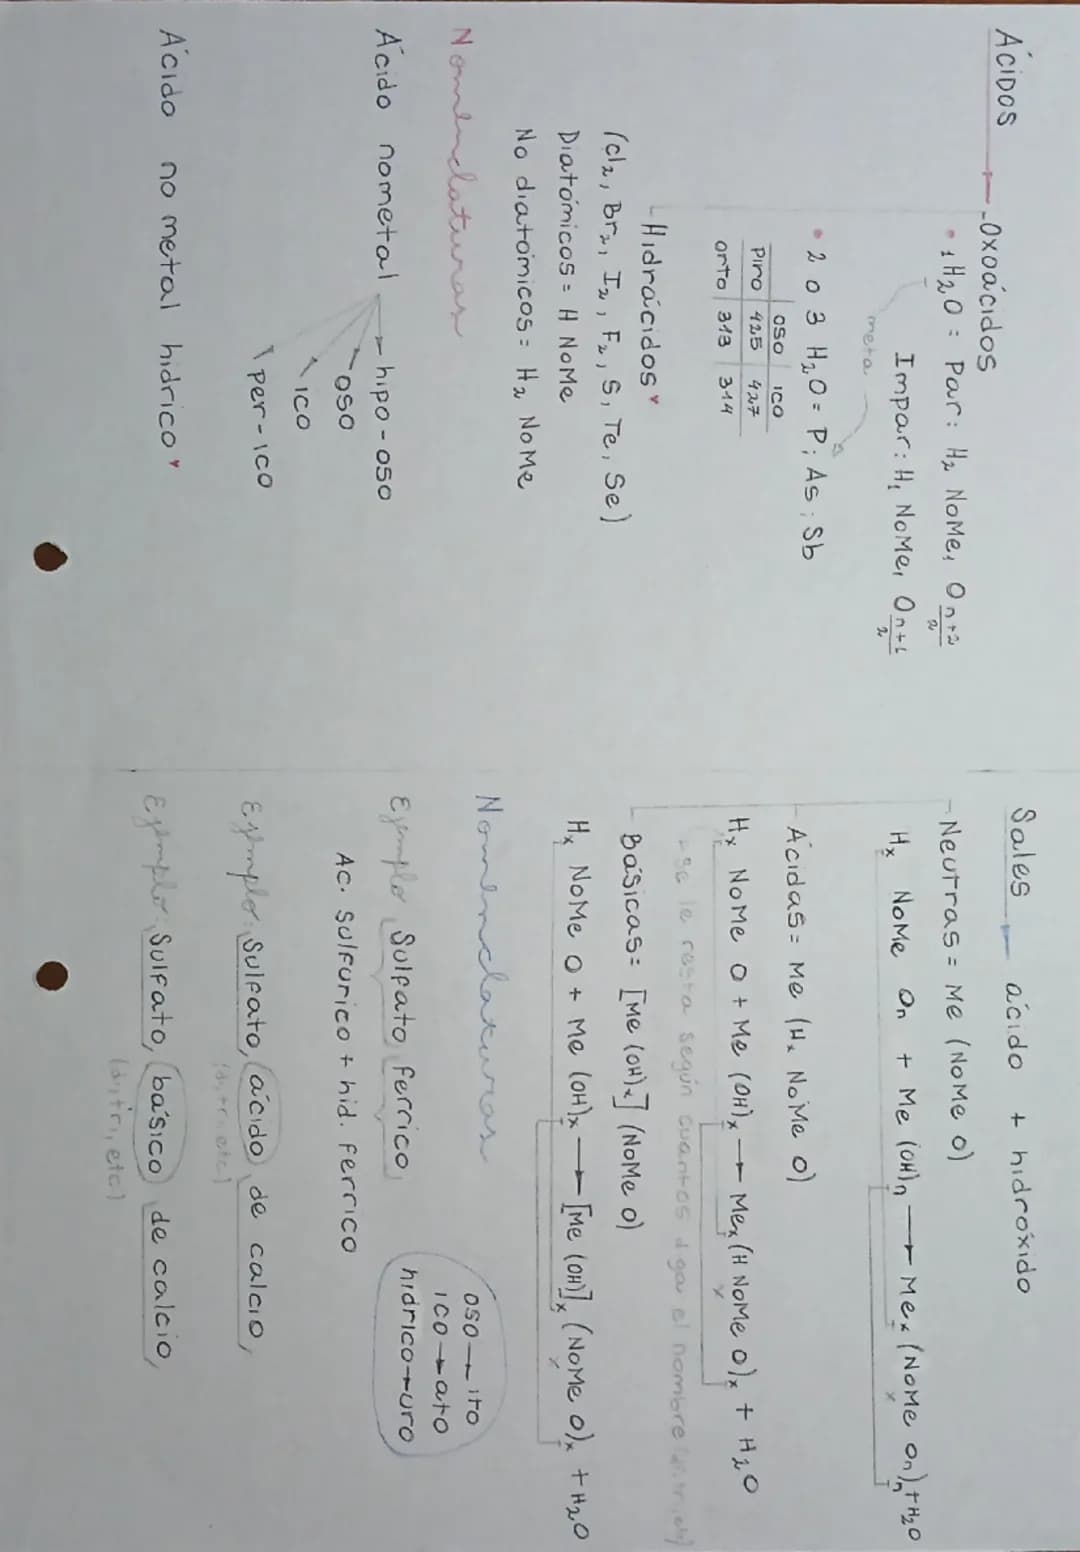 ÁCIDOS
- Oxoácidos
• 1 H2O = Par: H2 NoMe1 O n+2/2
Impar: H1 NoMe1 O n+1/2
meta
• 2 o 3 H2O = P; As; Sb
oso ico
Piro 425 427
orto 313 314
- Hidrácidos
(Cl2, Br2, I2, F2, S, Te, Se)
Diatómicos = H NoMe
No diatómicos = H2 NoMe
Nomenclaturas
Ácido nometal → hipo-oso
oso
ico
per-ico
Ácido no metal hídrico
Sales → ácido + hidróxido
- Neutras = Me (NoMe O)
Hx NoMe On + Me (OH)n → Mex (NoMe On)n + H2O
- Ácidas = Me (Hx NoMe O)
Hx NoMe O + Me (OH)x → Mex (H NoMe O)x + H2O
se le resta según cuantos diga el nombre
- Básicas = [Me (OH)x] (NoMe O)
Hx NoMe O + Me (OH)x → [Me (OH)]x (NoMe O)x + H2O
Nomenclaturas
oso → ito
ico → ato
hidrico → uro
Ejemplo: Sulfato ferrico
Ac. sulfurico + hid. ferrico
Ejemplo: Sulfato, ácido de calcio,
(di, tri, etc)
Ejemplo: Sulfato, básico de calcio,
(di, tri, etc)